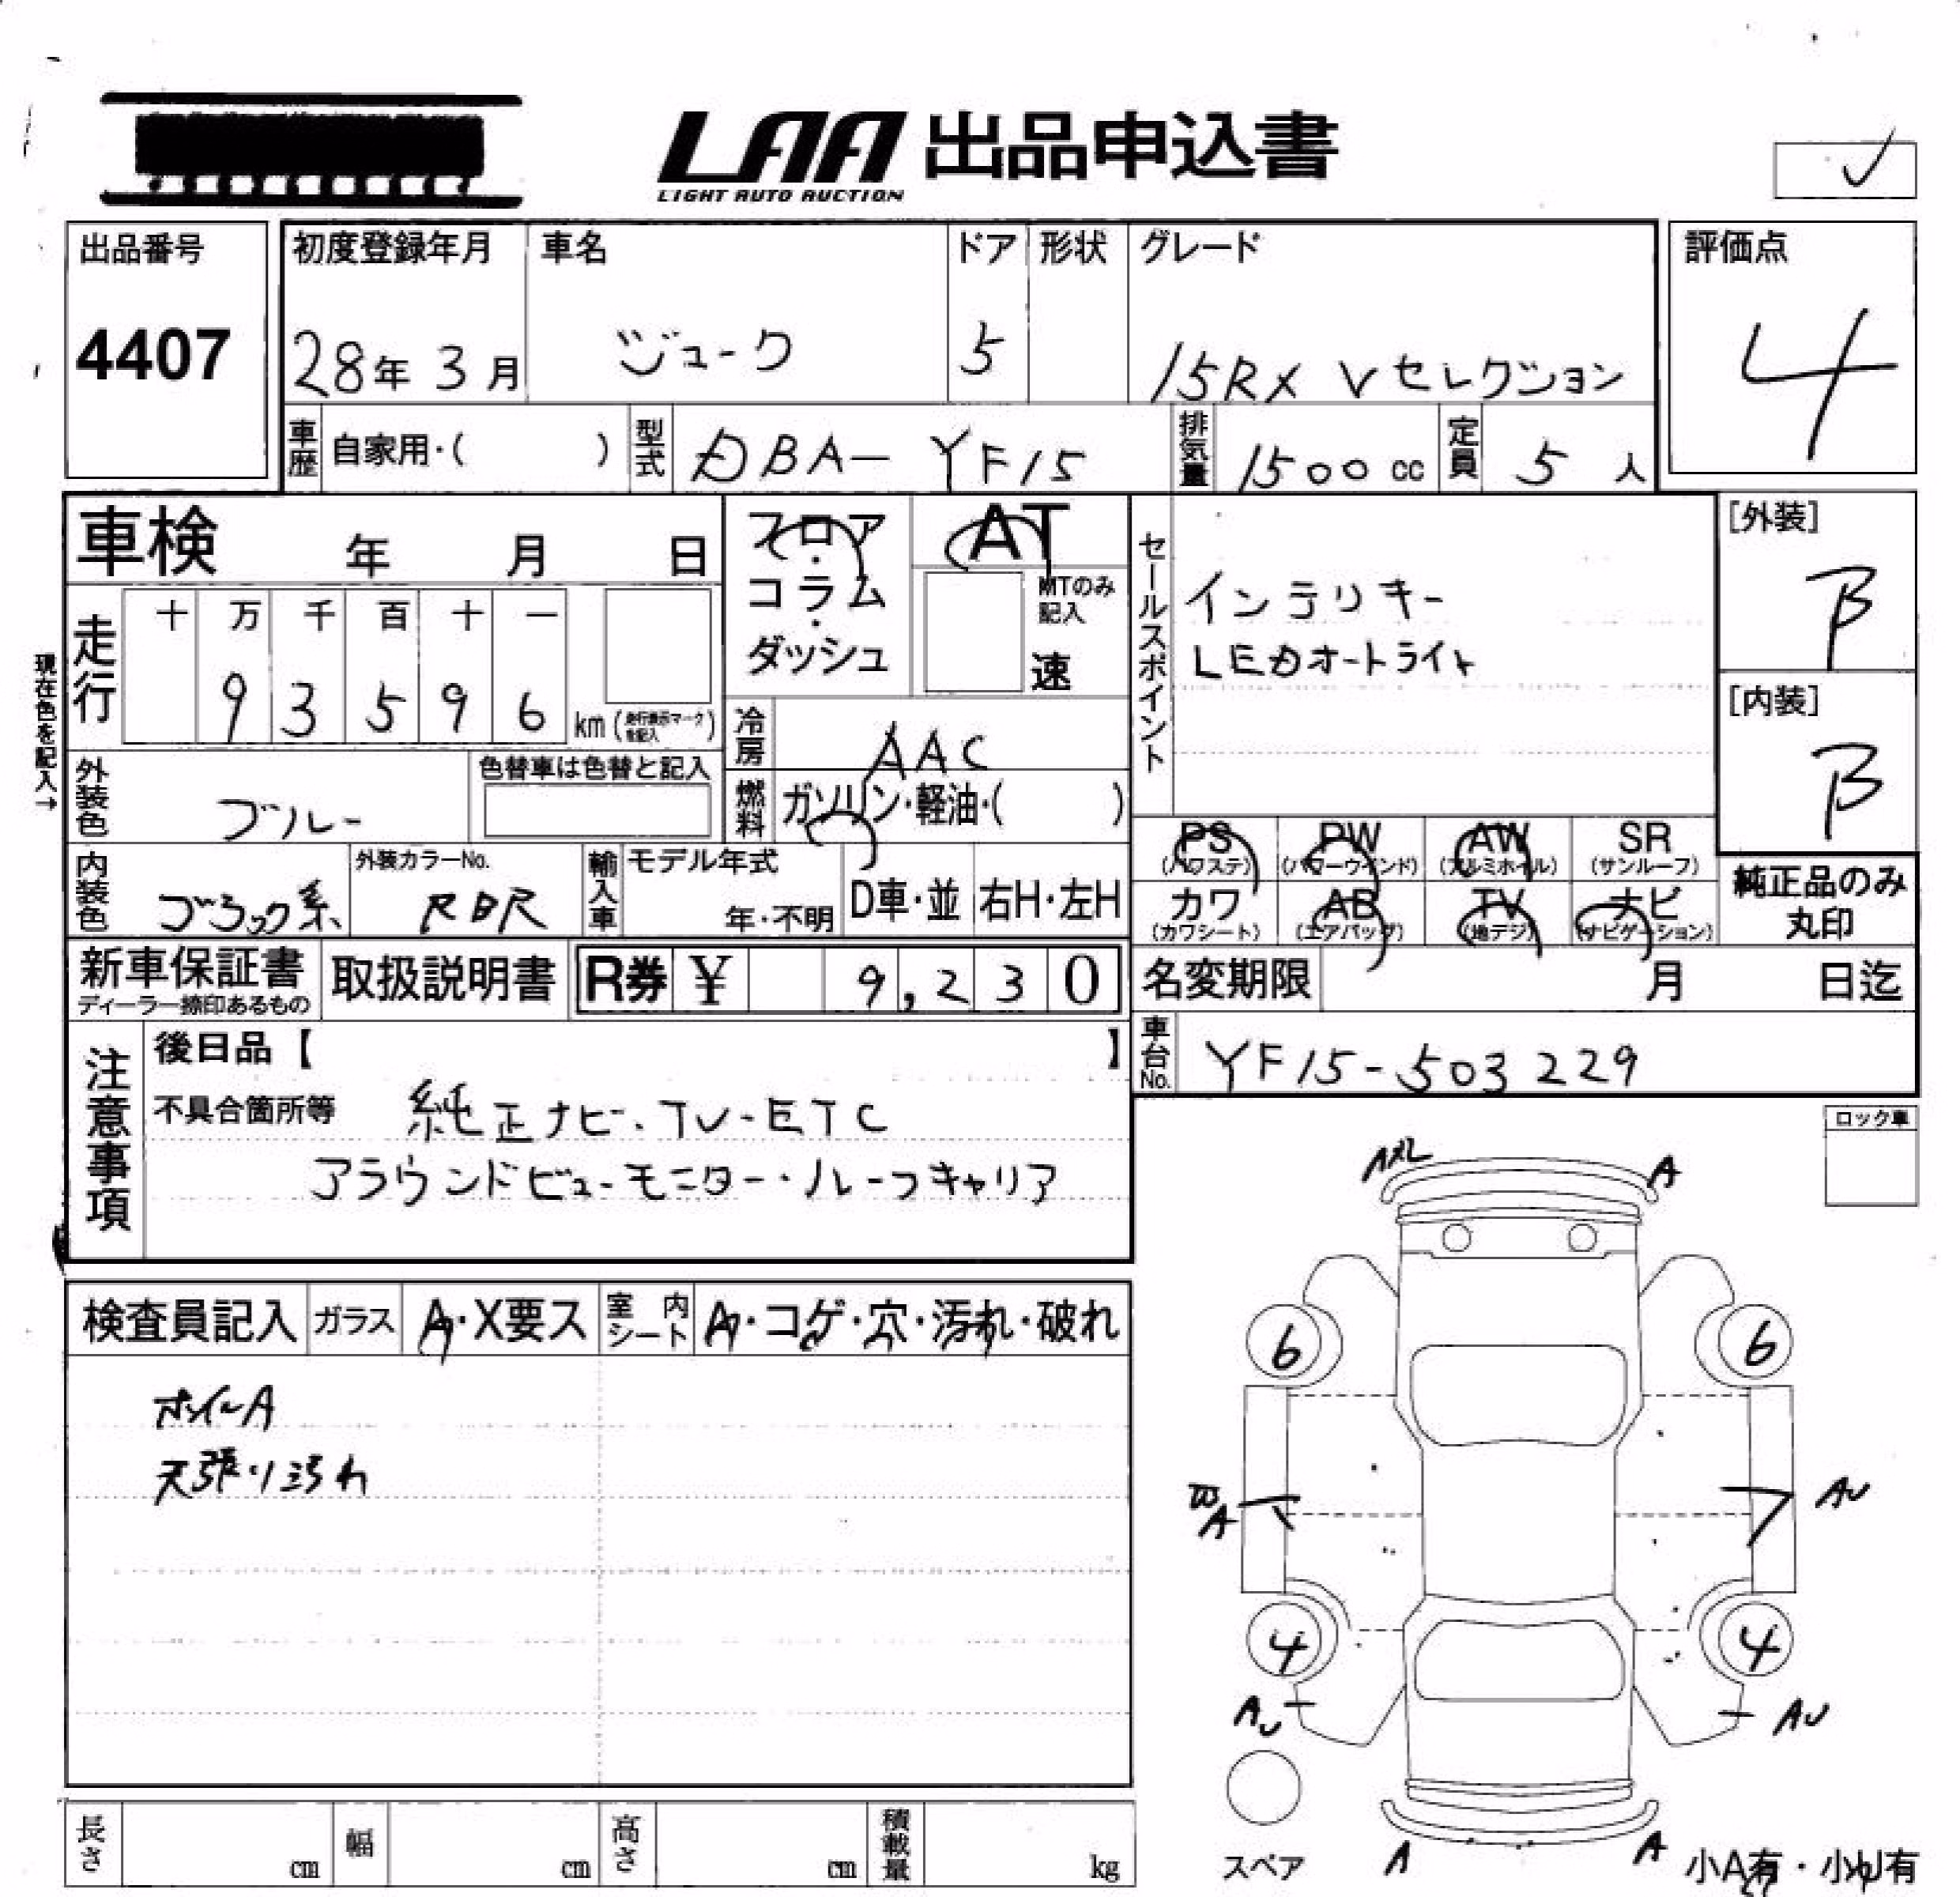 LAA 出品申込書
LIGHT AUTO AUCTION
出品番号
4407
初度登録年月
28年 3月
車名
ジューク
ドア
5
形状
グレード
15RX Vセレクション
評価点
4
車歴 自家用・( )
型式 DBA-YF15
排気量 1500 cc
定員 5 人
車検 年 月 日
フロア・コラム・ダッシュ
AT
MTのみ記入
速
セールスポイント
インテリキー
LEDオートライト
[外装]
B
[内装]
B
現在色を記入→
走行
十 万 千 百 十 一
9 3 5 9 6 km (走行表示マークを記入)
冷房 AAC
外装色 ブルー
色替車は色替と記入
燃料 ガソリン・軽油・( )
内装色 ブラック系
外装カラーNo.
RBR
輸入車
モデル年式
年・不明
D車・並
右H・左H
PS (パワステ)
PW (パワーウインド)
AW (アルミホイル)
SR (サンルーフ)
カワ (カワシート)
AB (エアバッグ)
TV (地デジ)
ナビ (ナビゲーション)
純正品のみ丸印
新車保証書
ディーラー捺印あるもの
取扱説明書
R券 ¥ 9,230
名変期限 月 日迄
車台No. YF15-503229
注意事項
後日品【 】
不具合箇所等
純正ナビ・TV・ETC
アラウンドビューモニター・ルーフキャリア
ロック車
検査員記入
ガラス A・X要ス
室内シート A・コゲ・穴・汚れ・破れ
ホイルA
天張り汚れ
A
6
6
A
AU
4
4
AU
AU
スペア
A
A
小A有・小U有
長さ cm
幅 cm
高さ cm
積載量 kg